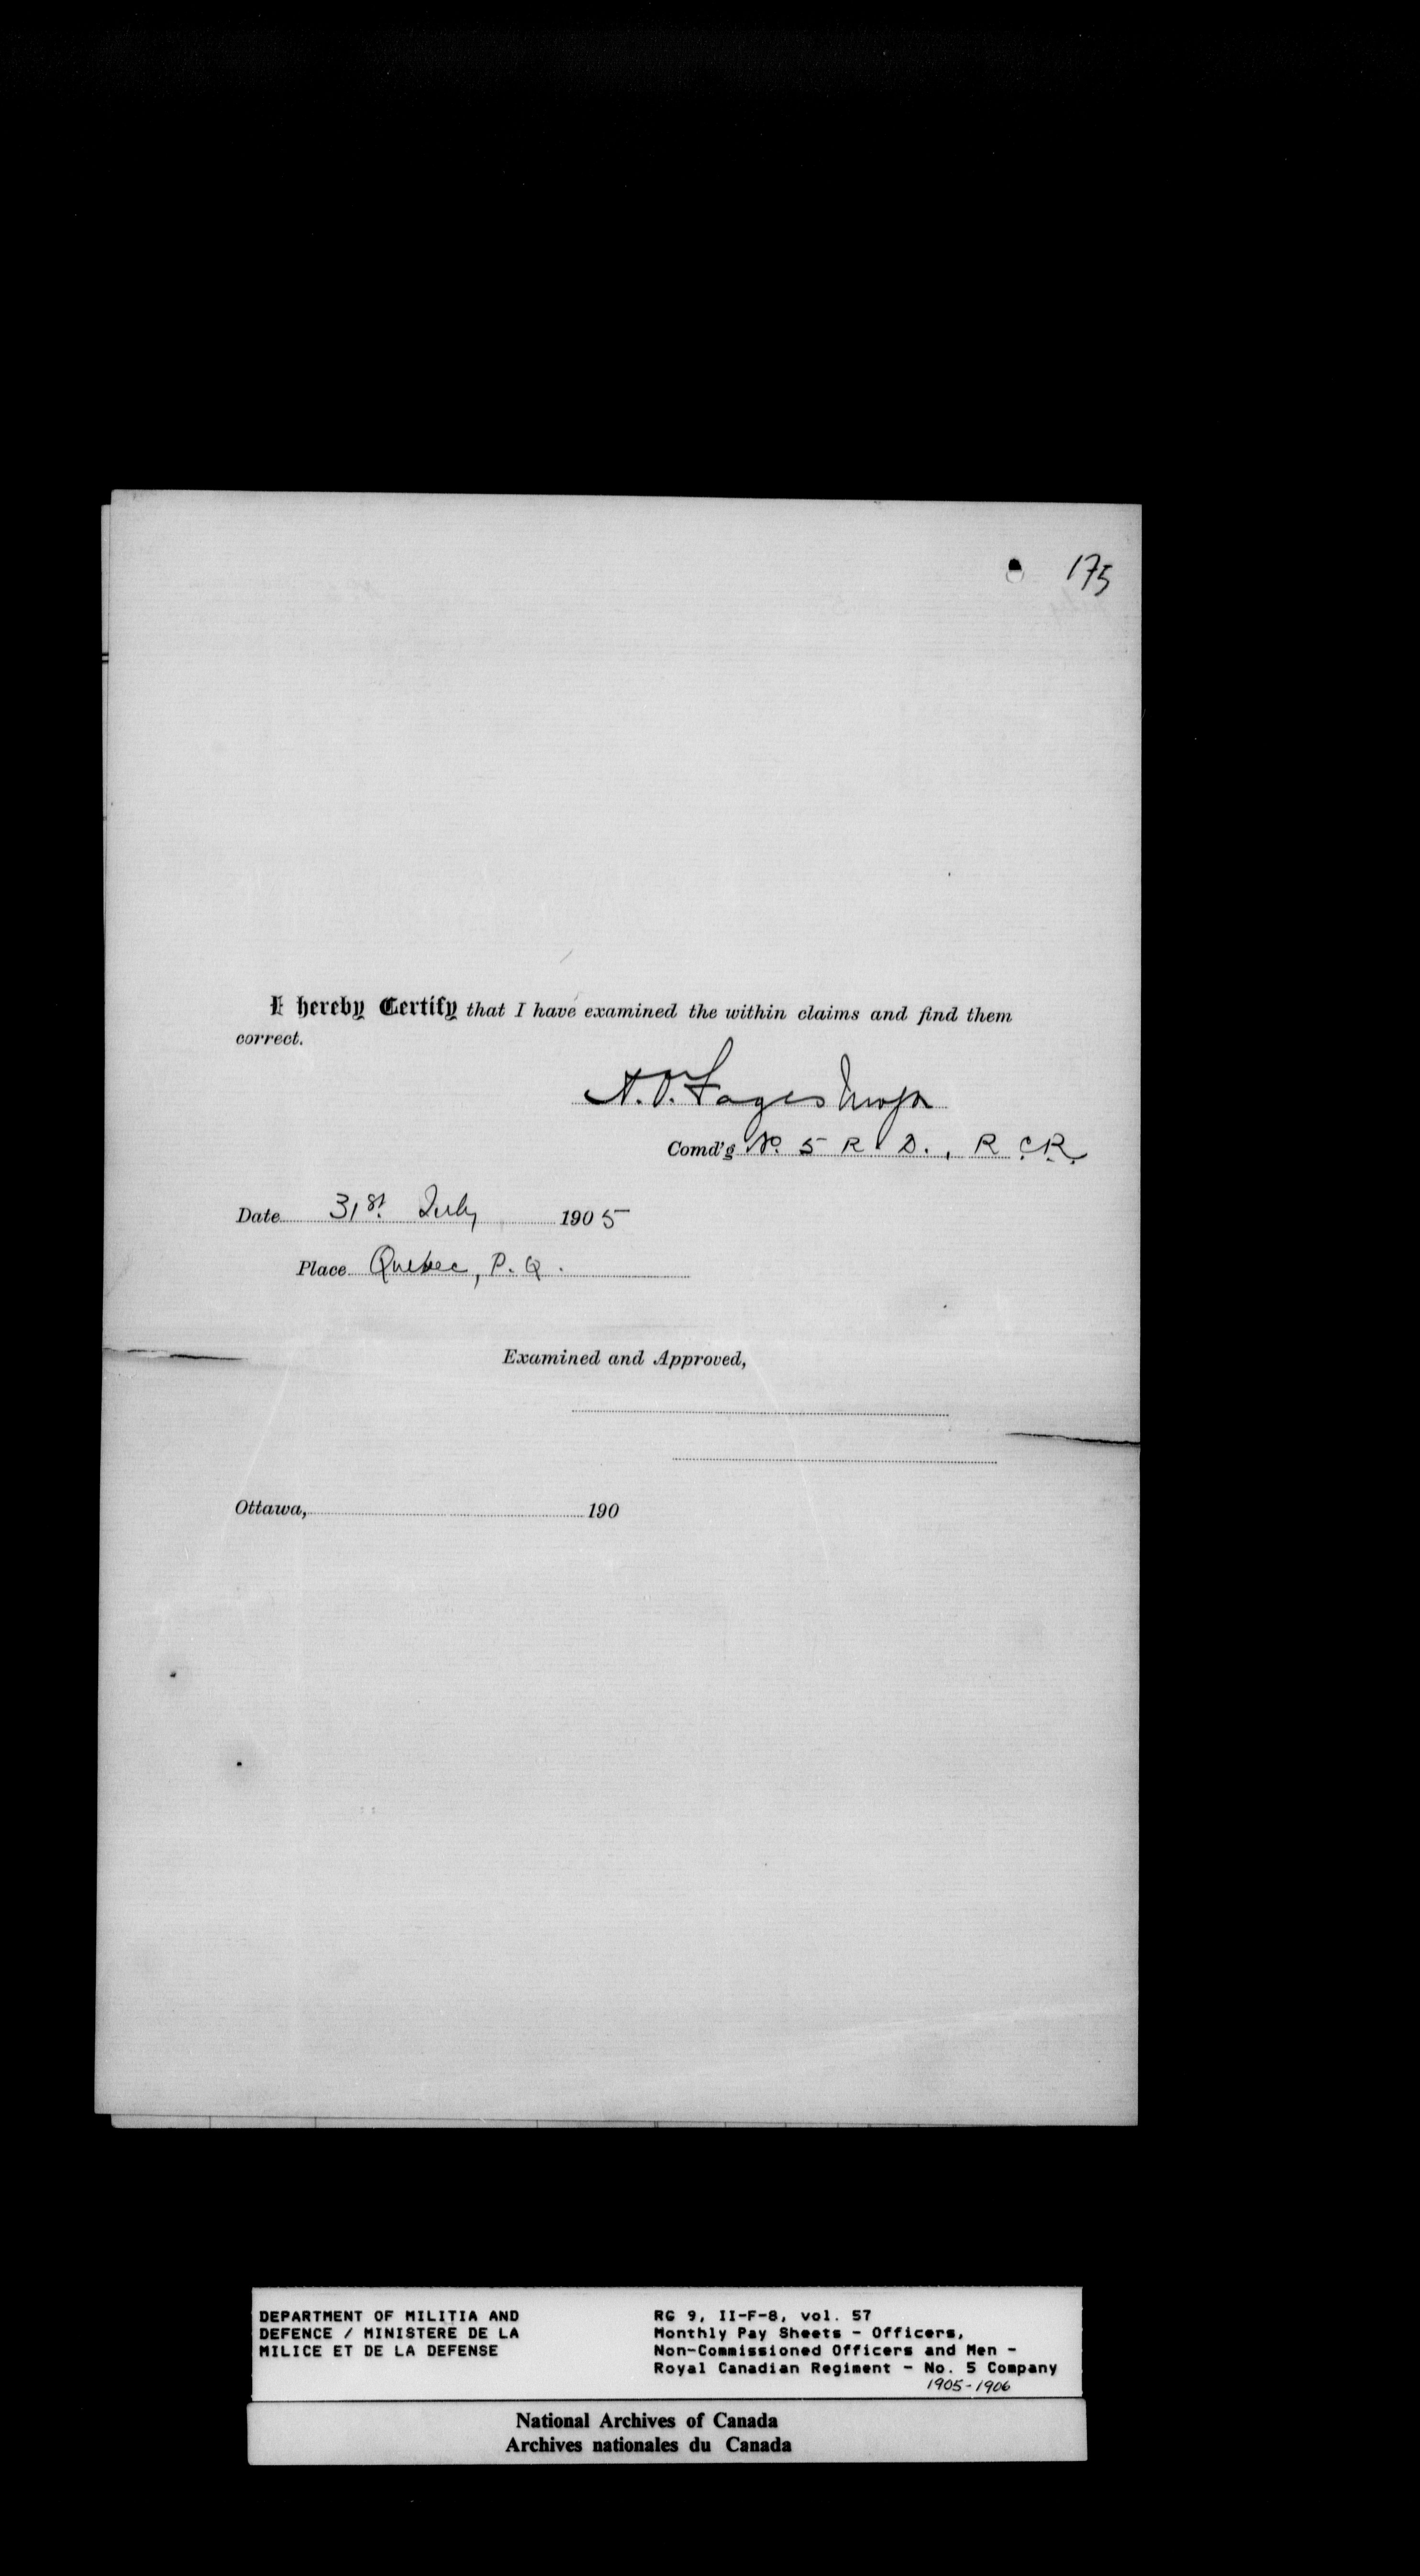 175
I hereby Certify that I have examined the within claims and find them
correct.
A.O. Fages Major
Comd'g No. 5 R. D., R.C.R.
Date 31st. July 1905
Place Quebec, P.Q.
Examined and Approved,
Ottawa, 190
DEPARTMENT OF MILITIA AND
DEFENCE / MINISTERE DE LA
MILICE ET DE LA DEFENSE
RG 9, II-F-8, vol. 57
Monthly Pay Sheets - Officers,
Non-Commissioned Officers and Men -
Royal Canadian Regiment - No. 5 Company
1905-1906
National Archives of Canada
Archives nationales du Canada